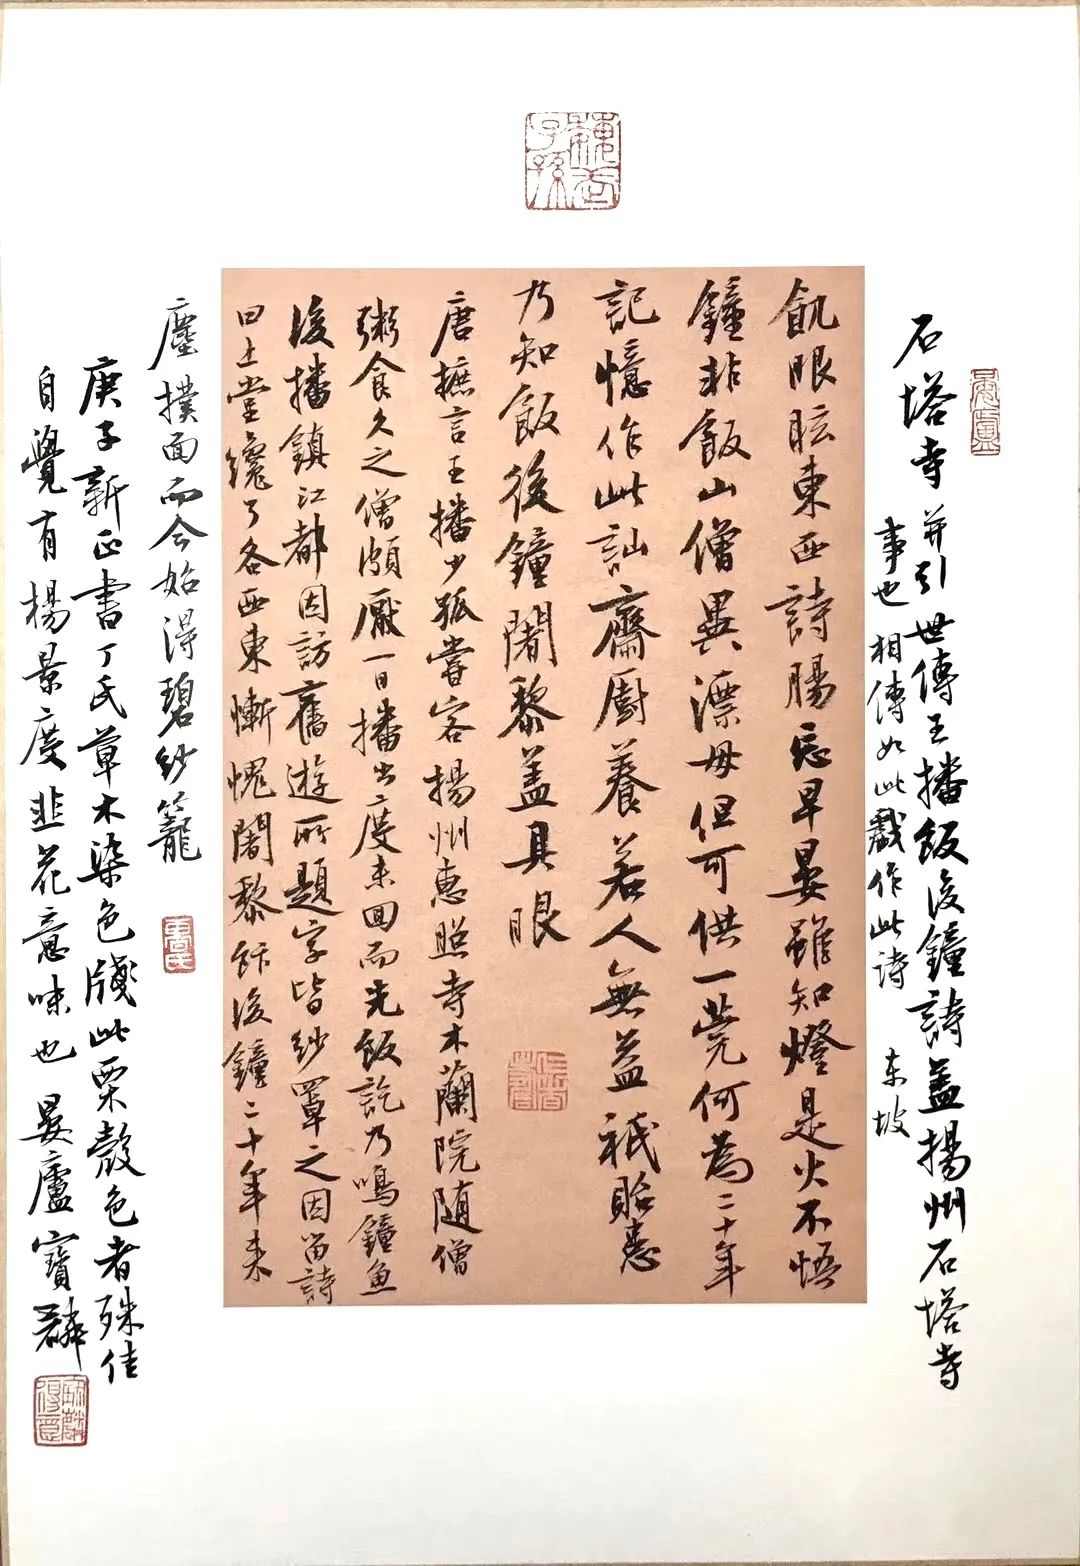 石塔寺 并引 世傳王播飯後鐘詩蓋揚州石塔寺
事也 相傳如此戲作此诗 东坡
飢眼眩東西詩腸忘早晏雖知燈是火不悟
鐘非飯山僧異漂母但可供一莞何為二十年
記憶作此訕齋厨養若人無益祇貽患
乃知飯後鐘闍黎蓋具眼
唐摭言王播少孤嘗客揚州惠照寺木蘭院随僧
粥食久之僧頗厭一日播出度未回而先飯訖乃鳴鐘魚
後播鎮江都因訪舊遊所題字皆紗罩之因留詩
曰上堂纔了各西東慚愧闍黎飯後鐘二十年來
塵撲面而今始得碧紗籠
庚子新正書丁氏草木染色牋此栗殼色者殊佳
自覺有楊景度韭花意味也 晏廬寶麟